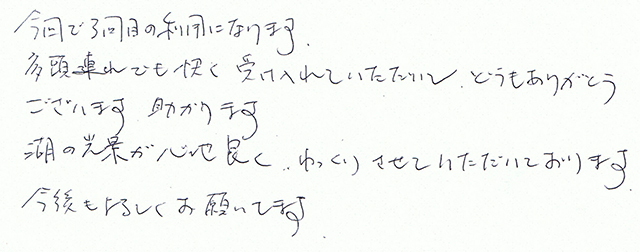 今回で3回目の利用になります.
多頭連れでも快く受け入れていただいて、どうもありがとう
ございます 助かります
湖の光景が心地良く、ゆっくりさせていただいております.
今後もよろしくお願いします.